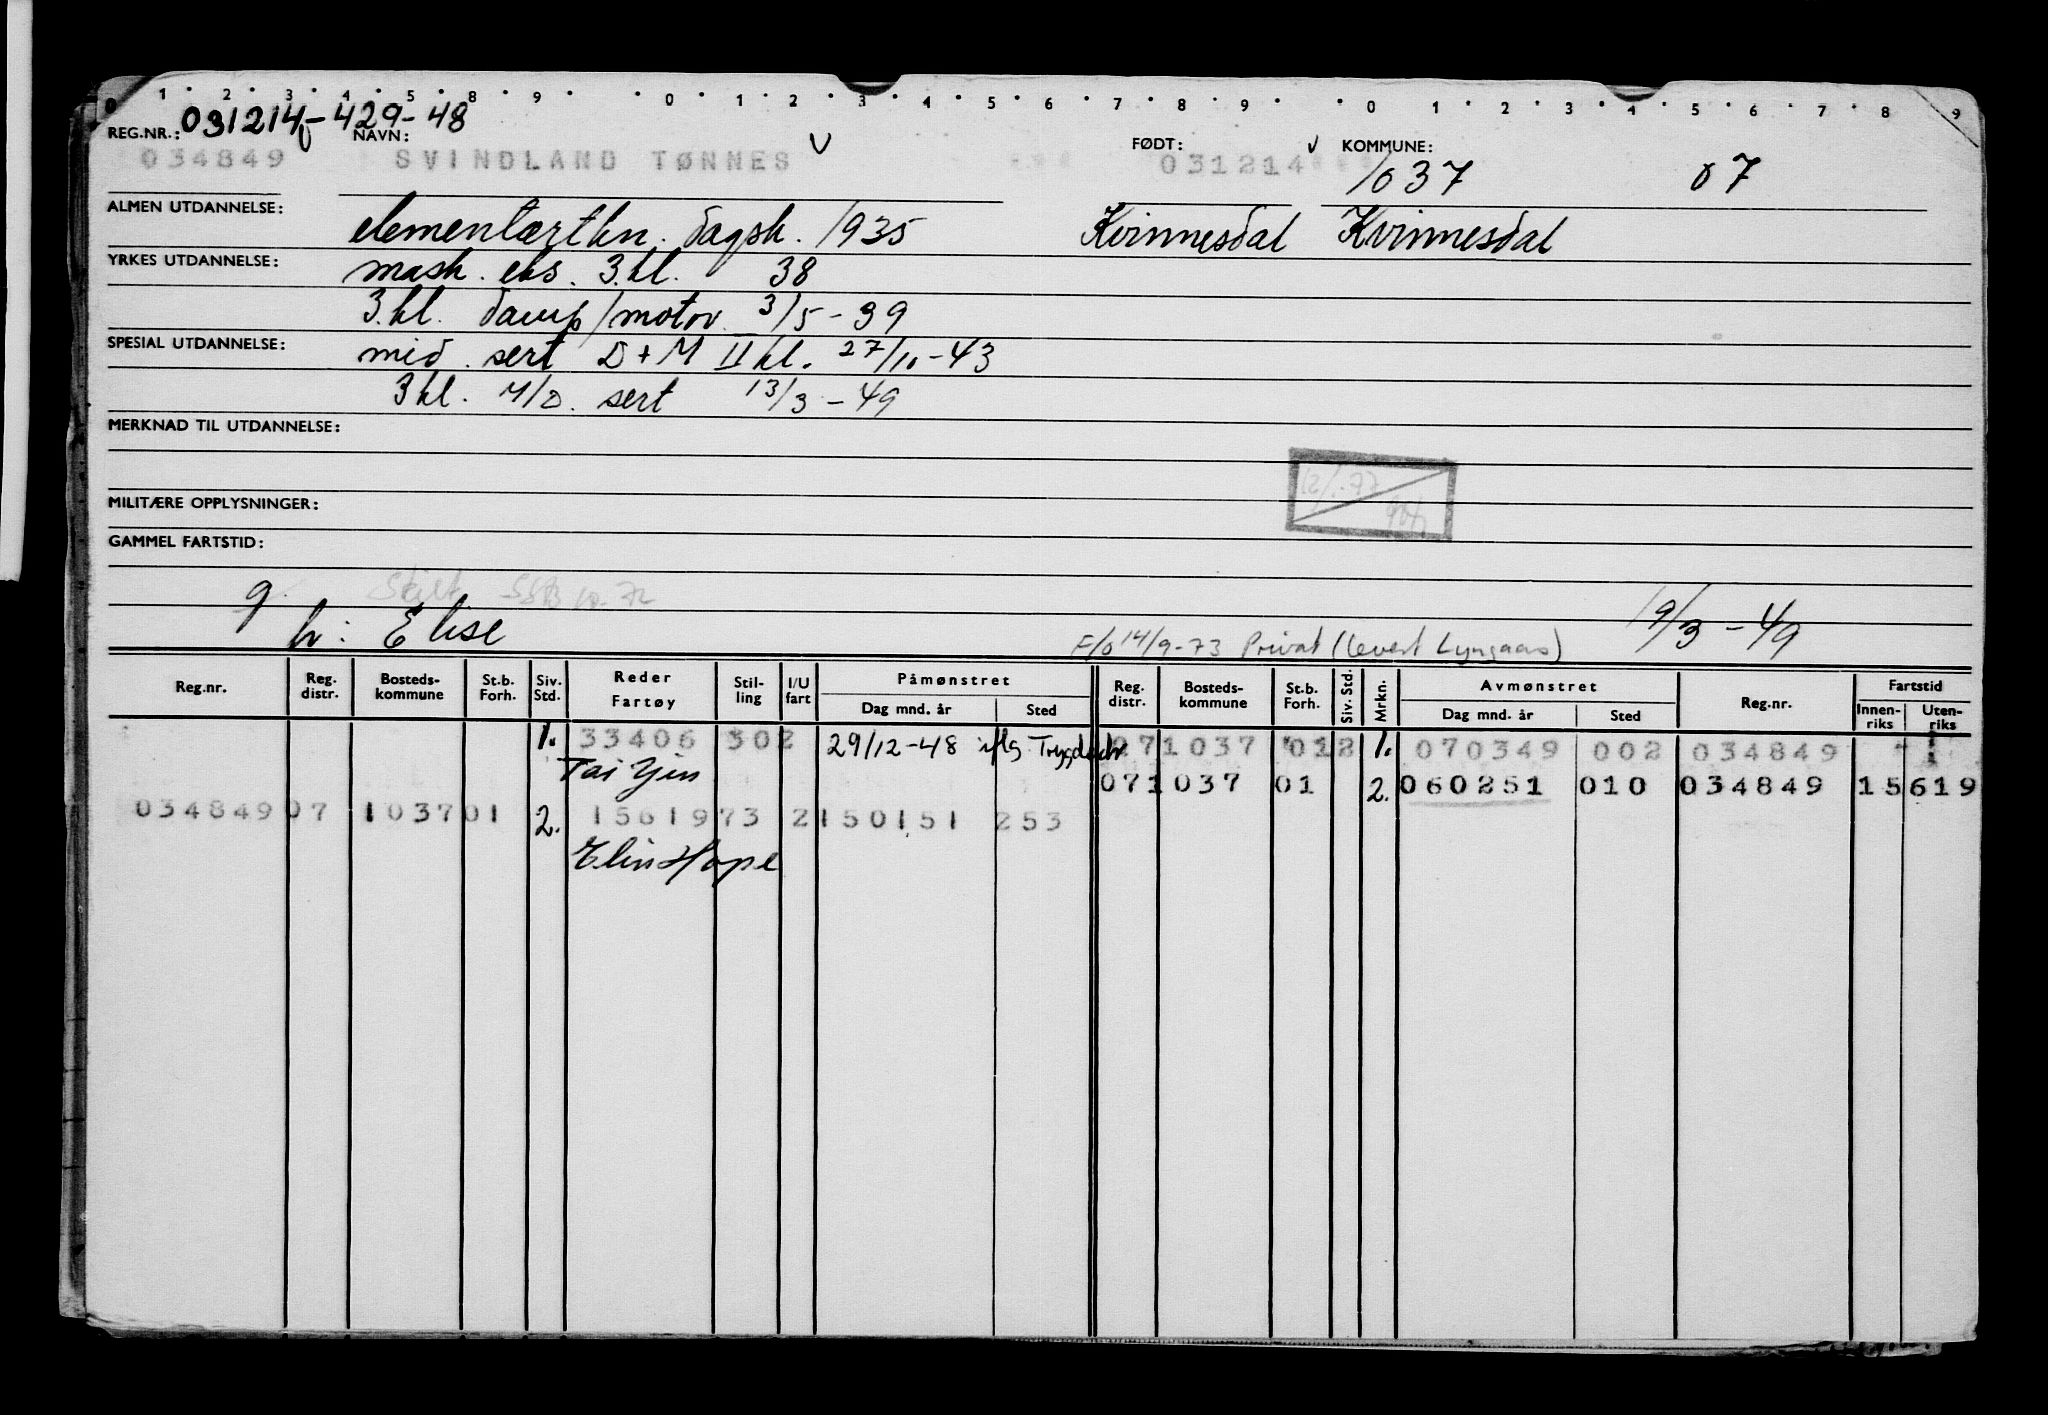 1 2 3 4 5 8 9 0 1 2 3 4 5 6 7 8 9 0 1 2 3 4 5 6 7 8 9
031214-429-48
REG.NR.: NAVN: FØDT: KOMMUNE:
034849 SVINDLAND TØNNES 031214 1037 07
ALMEN UTDANNELSE: elementærtkn. dagsk. 1935 Kvinnesdal Kvinnesdal
YRKES UTDANNELSE: mask. eks. 3.kl. 38
3.kl. damp/motor 3/5-39
SPESIAL UTDANNELSE: mid. sert D+M II kl. 27/10-43
3kl. M/D. sert 13/3-49
MERKNAD TIL UTDANNELSE:
12/-77
MILITÆRE OPPLYSNINGER:
GAMMEL FARTSTID:
g. SSB 10.72
h: Elise F/o 14/9-73 Privat (levert Lyngaas) 19/3-49
Reg.nr. Reg. distr. Bosteds-kommune St.b. Forh. Siv. Std. Reder Fartøy Stil-ling I/U fart Påmønstret Dag mnd. år Sted Reg. distr. Bosteds-kommune St.b. Forh. Siv. Std. Mrkn. Avmønstret Dag mnd. år Sted Reg.nr. Fartstid Innen-riks Uten-riks
1. 33406 302 29/12-48 iflg Trygdedir 071037 012 1. 070349 002 034849
Tai Yin 071037 01 2. 060251 010 034849 15 619
034849 07 1037 01 2. 15619 73 2 150151 253
Elin Hope